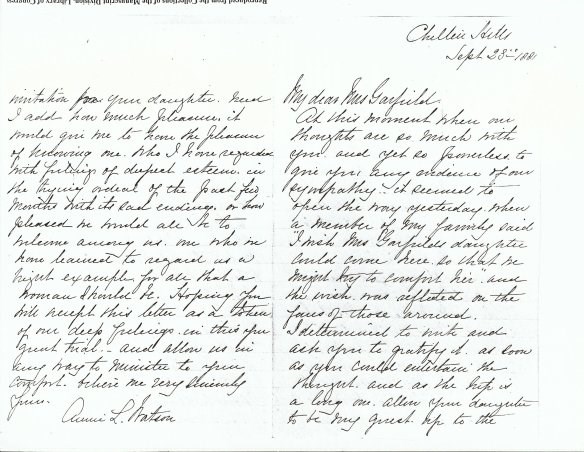 Reproduced from the Collections of the Manuscript Division, Library of Congress
Chelten Hills
Sept 23rd 1881
My dear Mrs Garfield.
At this moment when our
thoughts are so much with
you. and yet so powerless to
give you any evidence of our
sympathy - it seemed to
open the way yesterday. when
a member of my family said
"I wish Mrs Garfields daughter
could come here, so that we
might try to comfort her" and
the wish was reflected on the
faces of those around.
I determined to write and
ask you to gratify it. as soon
as you could entertain the
thought. and as the trip is
a long one. allow your daughter
to be my guest up to the
invitation from your daughter. need
I add how much pleasure, it
would give me to have the pleasure
of knowing one. who I have regarded
with feelings of deepest esteem. in
the trying ordeal of the past few
months with its sad ending. or how
pleased we would all be to
welcome among us. one who we
have learned to regard as a
bright example for all that a
woman should be. Hoping you
will accept this letter as a token
of our deep feelings. in this your
great trial. - and allow us in
any way to minister to your
comfort. believe me very sincerely
yours.
Annie L. Watson